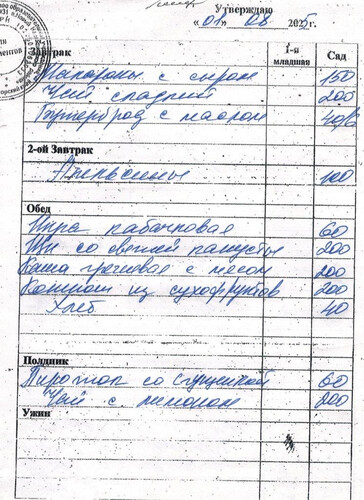 Утверждаю
«01» 08 2025г.
ментов
Завтрак 1-я младшая Сад
Макароны с сыром 150
Чай сладкий 200
Бутерброд с маслом
2-ой Завтрак
Апельсины 100
Обед
Икра кабачковая 60
Щи со свежей капусты 200
Каша гречневая с мясом 200
Компот из сухофруктов 200
Хлеб 40
Полдник
Пирожок со сгущенкой 60
Чай с лимоном 200
Ужин